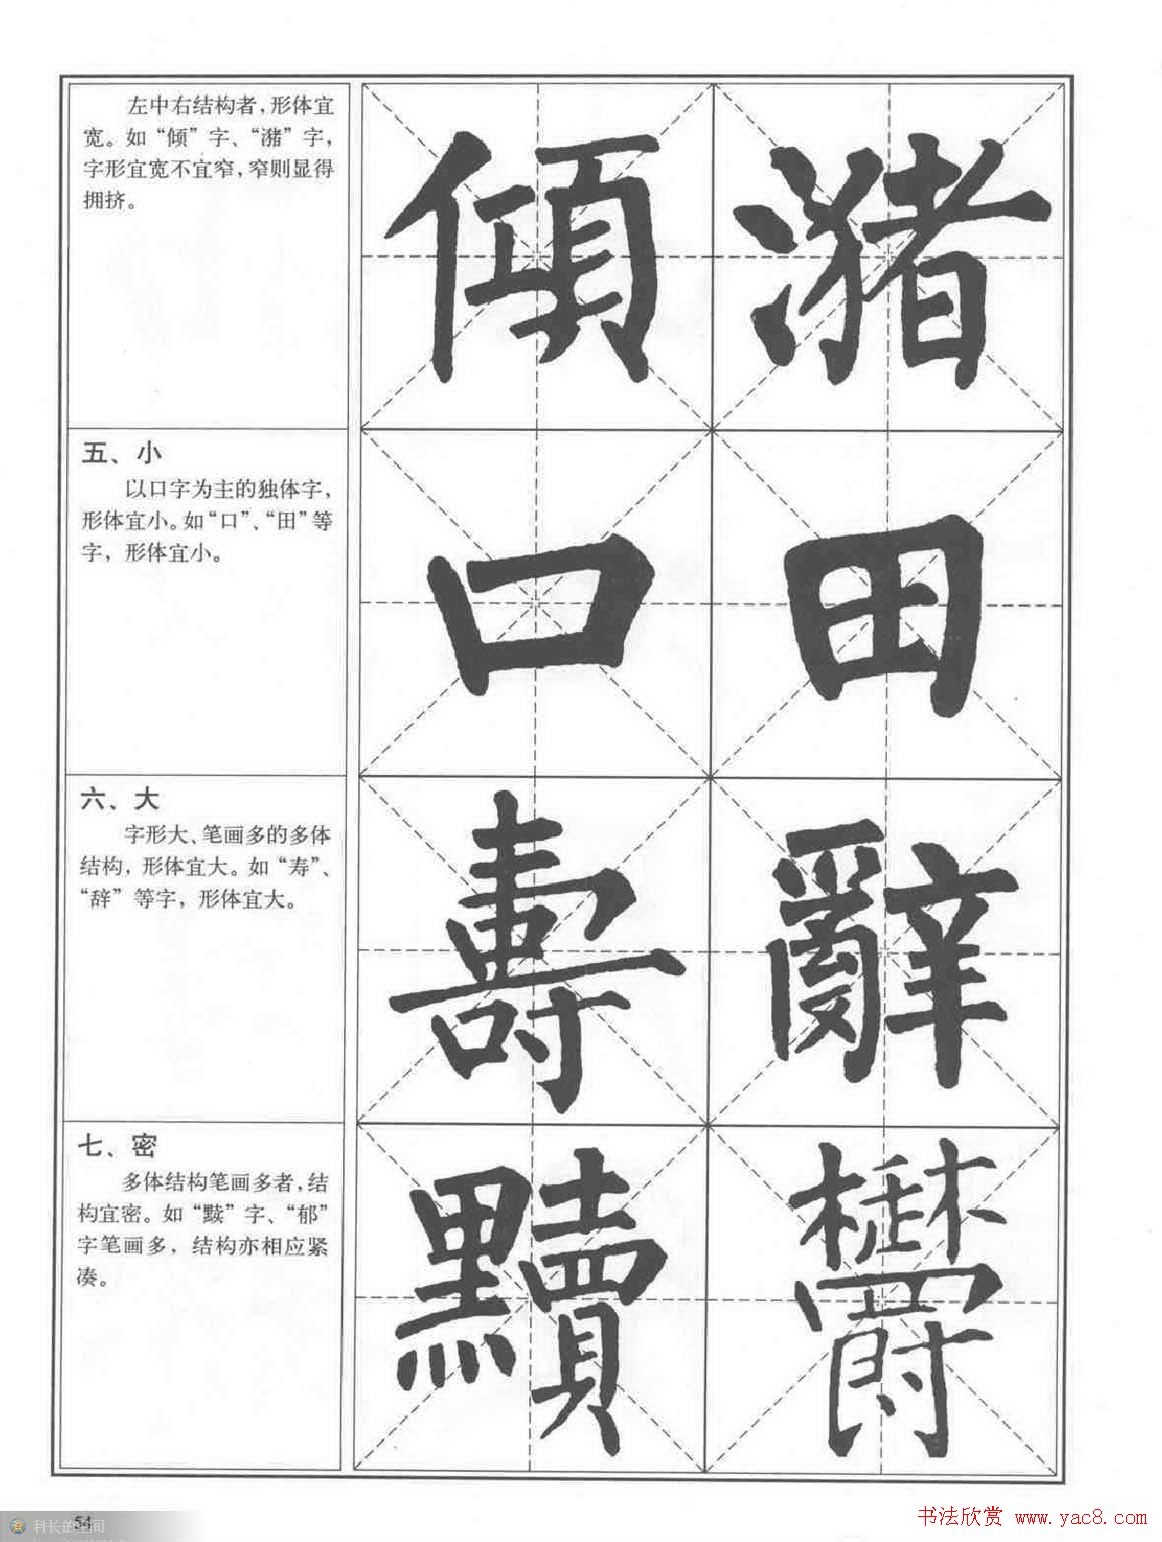 左中右结构者，形体宜
宽。如“倾”字、“潴”字，
字形宜宽不宜窄，窄则显得
拥挤。
傾 瀦
五、小
以口字为主的独体字，
形体宜小。如“口”、“田”等
字，形体宜小。
口 田
六、大
字形大、笔画多的多体
结构，形体宜大。如“寿”、
“辞”等字，形体宜大。
壽 辭
七、密
多体结构笔画多者，结
构宜密。如“黩”字、“郁”
字笔画多，结构亦相应紧
凑。
黷 欝
54
科长的空间
书法欣赏 www.yac8.com